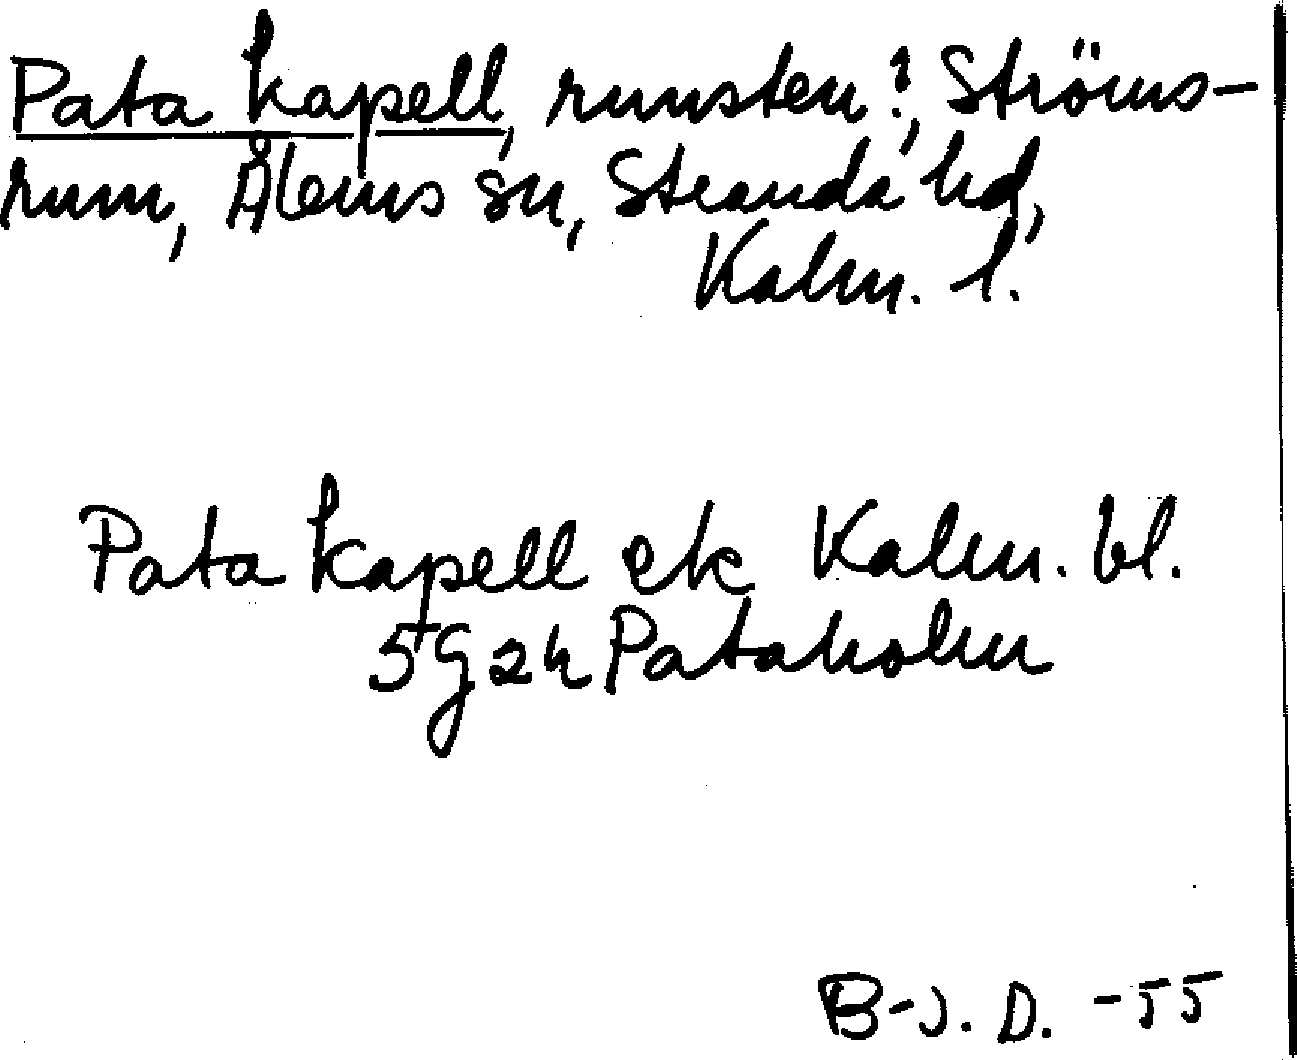 Pata kapell, runsten?, Ströms-
rum, Ålems sn, Stranda hd,
Kalm. l.
Pata kapell ek Kalm. bl.
5 G 2 h Pataholm
B-J. D. -55